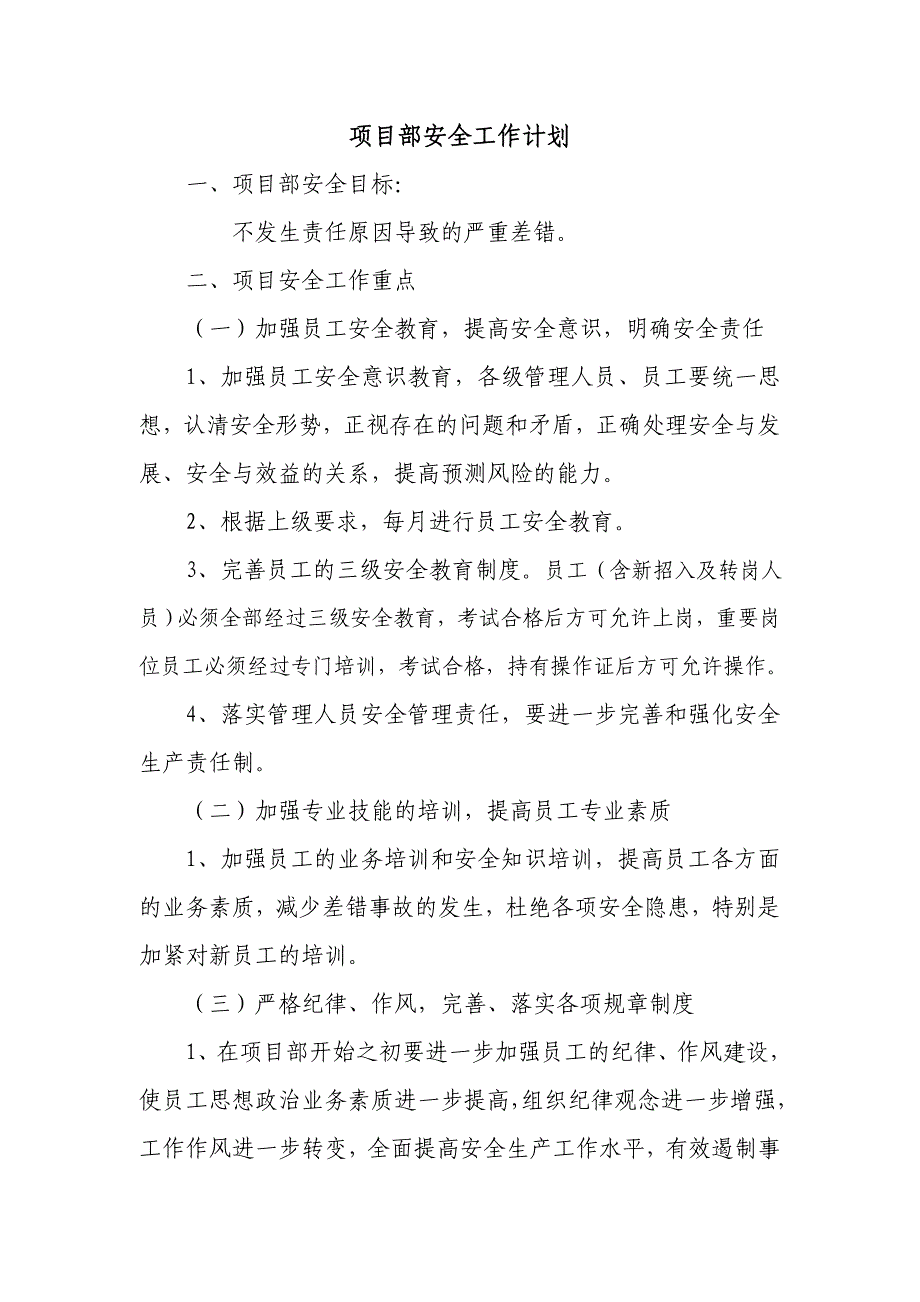 项目部安全工作计划
一、项目部安全目标：
不发生责任原因导致的严重差错。
二、项目安全工作重点
（一）加强员工安全教育，提高安全意识，明确安全责任
1、加强员工安全意识教育，各级管理人员、员工要统一思
想，认清安全形势，正视存在的问题和矛盾，正确处理安全与发
展、安全与效益的关系，提高预测风险的能力。
2、根据上级要求，每月进行员工安全教育。
3、完善员工的三级安全教育制度。员工（含新招入及转岗人
员）必须全部经过三级安全教育，考试合格后方可允许上岗，重要岗
位员工必须经过专门培训，考试合格，持有操作证后方可允许操作。
4、落实管理人员安全管理责任，要进一步完善和强化安全
生产责任制。
（二）加强专业技能的培训，提高员工专业素质
1、加强员工的业务培训和安全知识培训，提高员工各方面
的业务素质，减少差错事故的发生，杜绝各项安全隐患，特别是
加紧对新员工的培训。
（三）严格纪律、作风，完善、落实各项规章制度
1、在项目部开始之初要进一步加强员工的纪律、作风建设，
使员工思想政治业务素质进一步提高，组织纪律观念进一步增强，
工作作风进一步转变，全面提高安全生产工作水平，有效遏制事